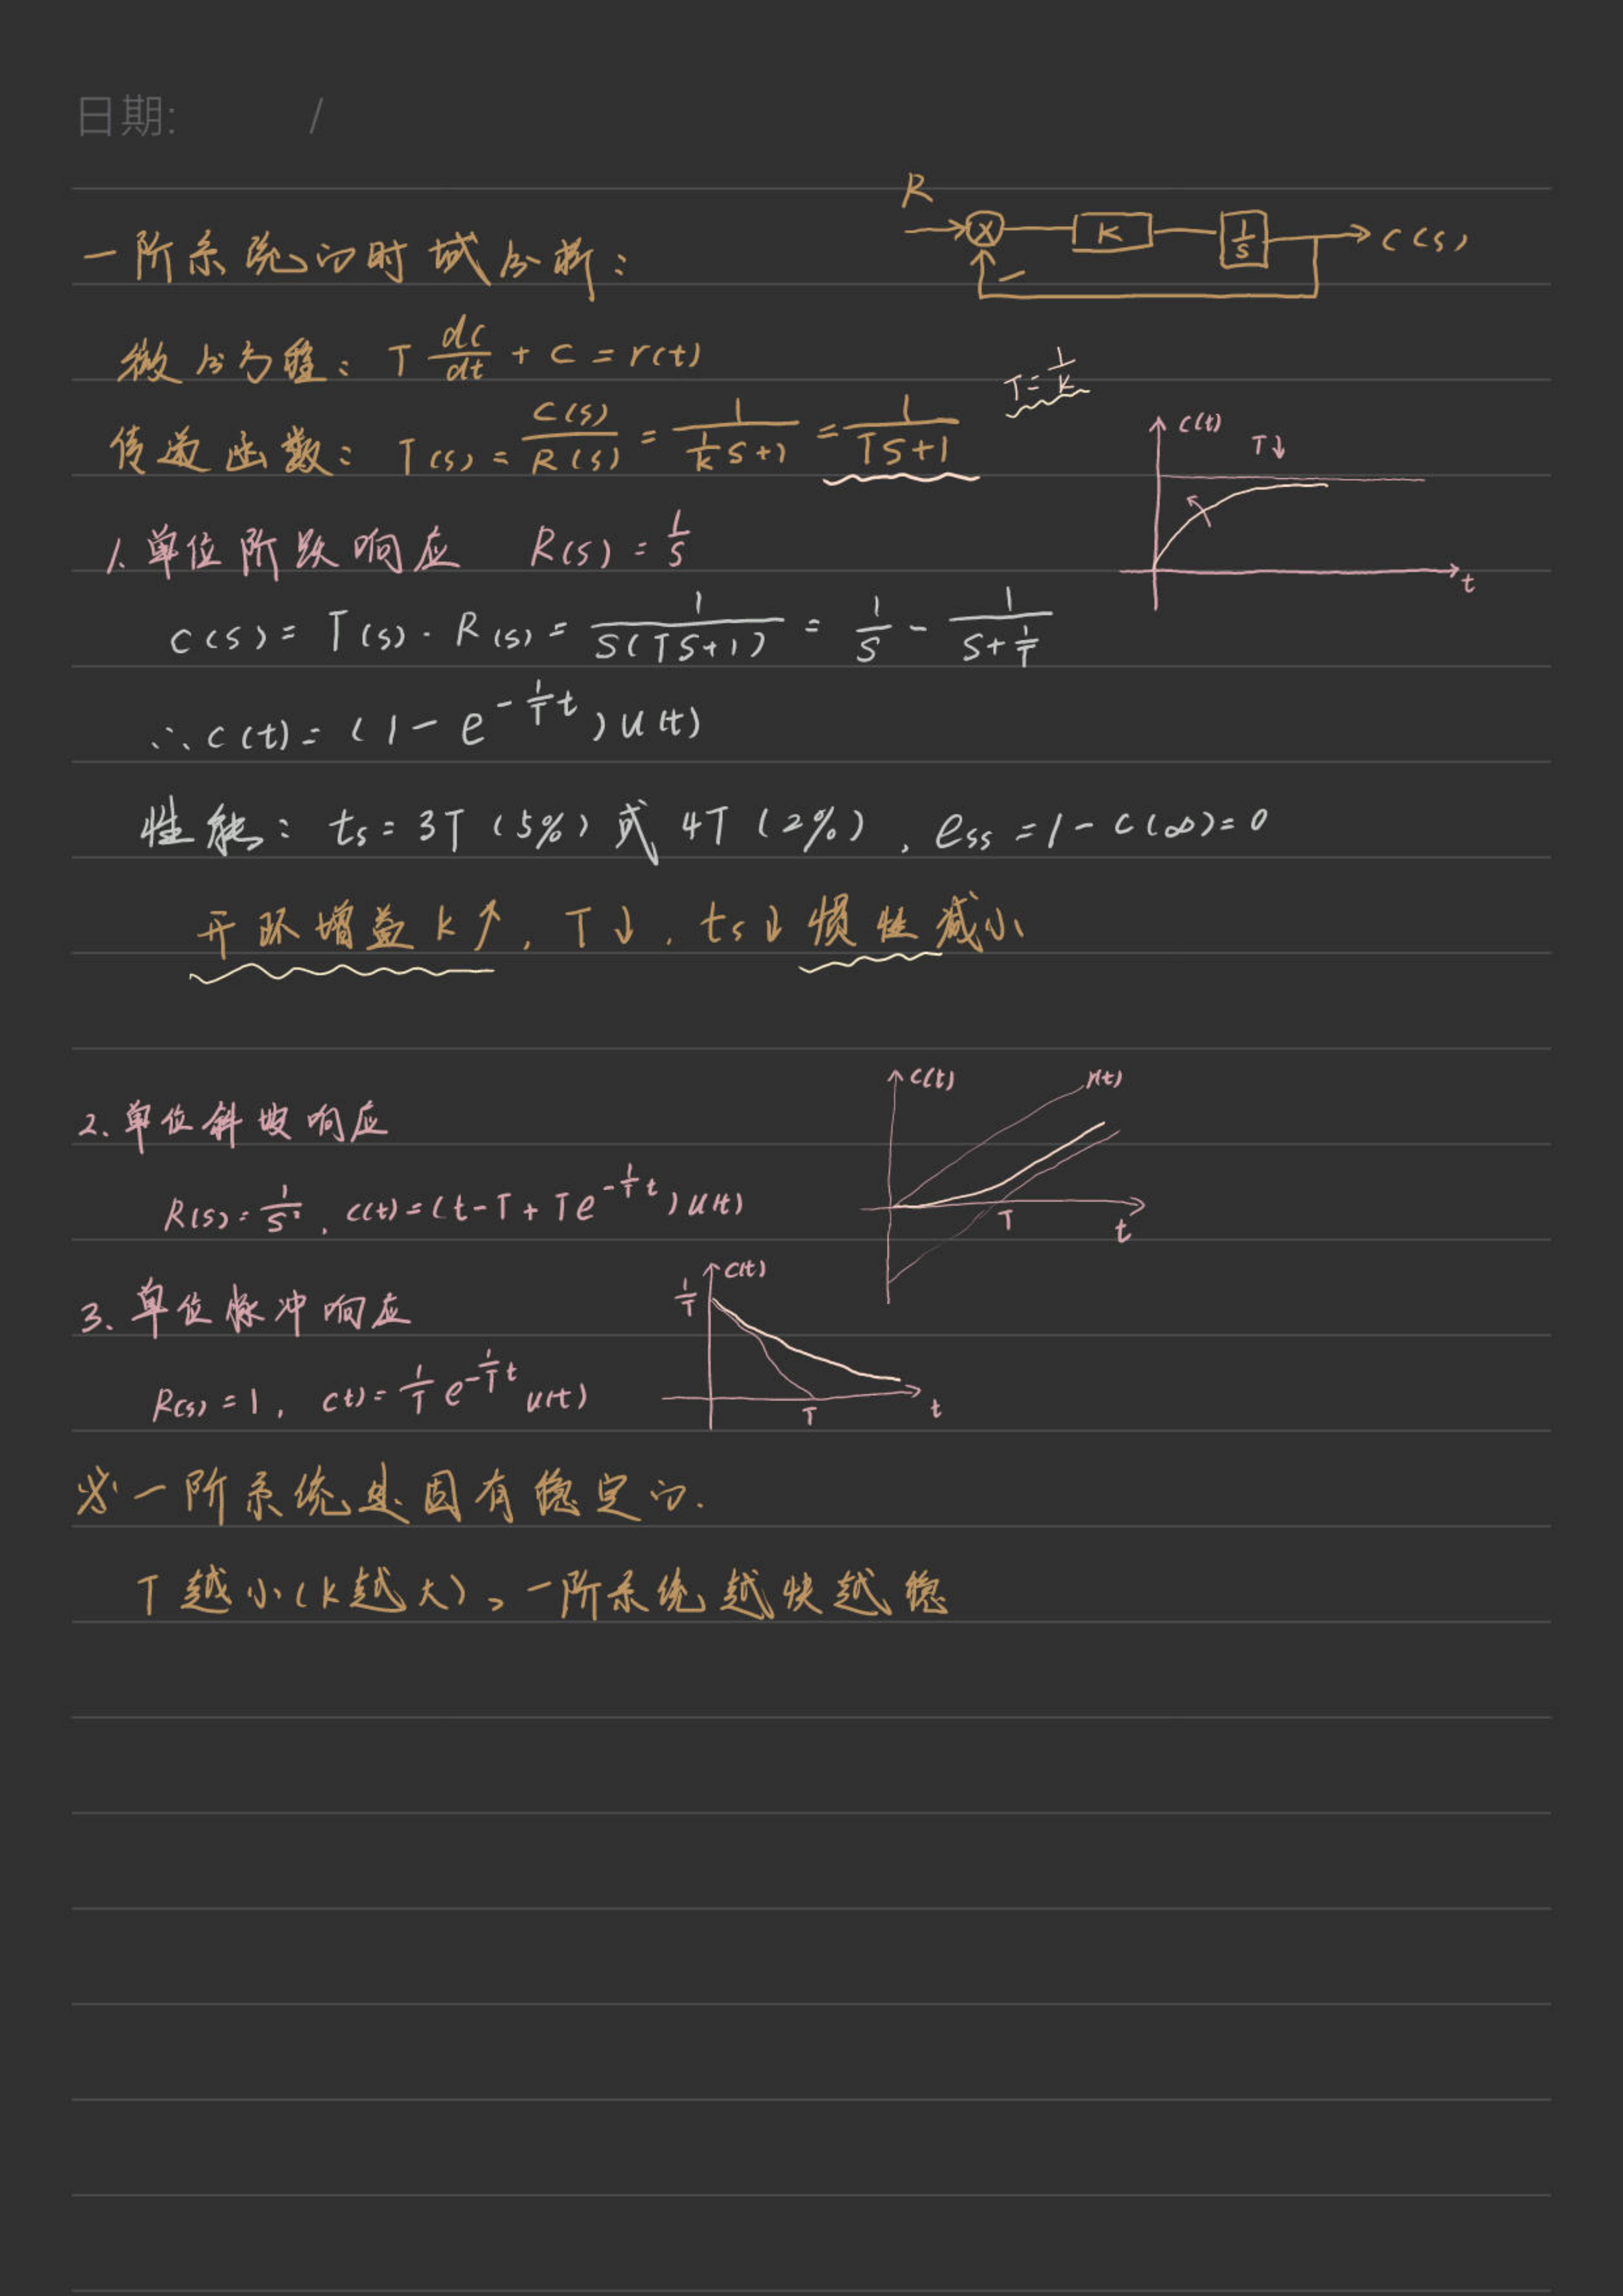 日期: /
R
K
1/s
C(s)
−
一阶系统的时域分析:
微分方程: T dc/dt + c = r(t)
T = 1/K
传递函数: T(s) = C(s)/R(s) = 1/(1/K S+1) = 1/(TS+1)
c(t)
T↓
t
1. 单位阶跃响应 R(s) = 1/s
C(s) = T(s)·R(s) = 1/(S(TS+1)) = 1/S − 1/(S+1/T)
∴ c(t) = (1 − e^(−1/T t)) u(t)
性能: ts = 3T (5%) 或 4T (2%), ess = 1 − c(∞) = 0
开环增益 K↑, T↓, ts↓ 惯性减小
2. 单位斜坡响应
c(t)
r(t)
T
t
R(s) = 1/s², c(t) = (t − T + Te^(−1/T t)) u(t)
3. 单位脉冲响应
1/T
c(t)
T
t
R(s) = 1, c(t) = 1/T e^(−1/T t) u(t)
※ 一阶系统是固有稳定的.
T越小(K越大), 一阶系统越快越稳